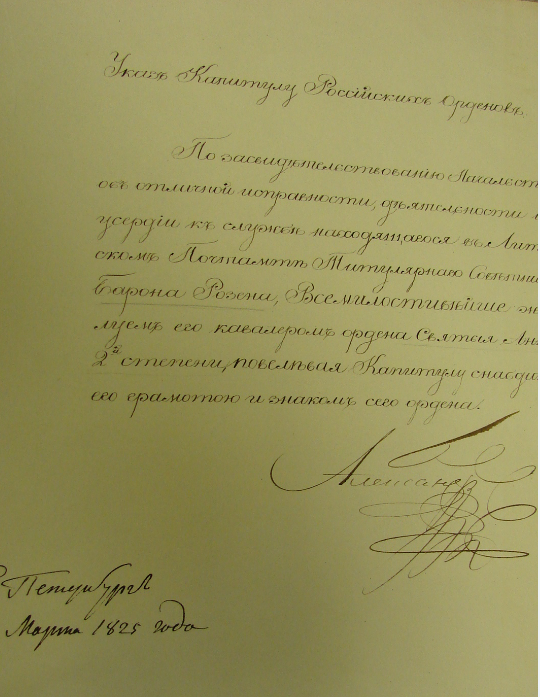 Указъ Капитулу Россійскихъ Орденовъ.
По засвидѣтельствованію Началст
объ отличной исправности, дѣятельности
усердіи къ службѣ находящагося въ Лит
скомъ Почтамтѣ Титулярнаго Совѣтни
Барона Розена, Всемилостивѣйше жа
луемъ его кавалеромъ ордена Святыя Ан
2й степени, повелѣвая Капитулу снабди
его грамотою и знакомъ сего ордена.
Александръ
Петербургъ
Марта 1825 года